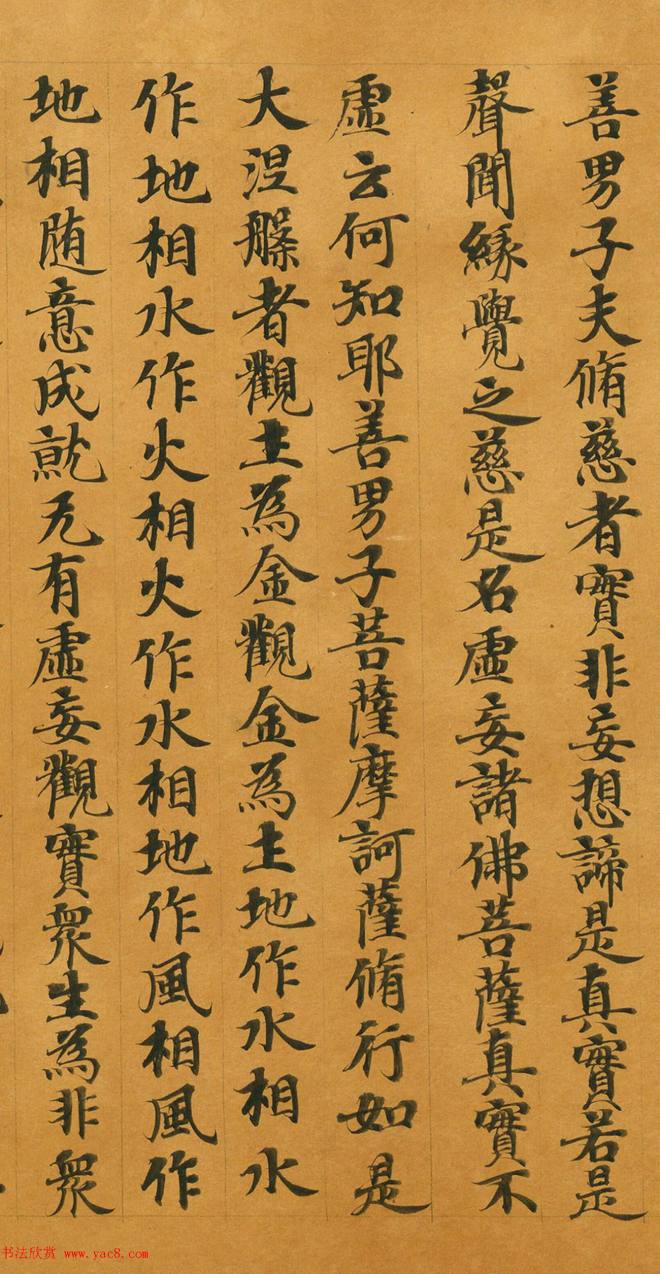 善男子夫脩慈者實非妄想諦是真實若是
聲聞緣覺之慈是名虛妄諸佛菩薩真實不
虛云何知耶善男子菩薩摩訶薩脩行如是
大涅槃者觀土為金觀金為土地作水相水
作地相水作火相火作水相地作風相風作
地相随意成就无有虛妄觀實衆生為非衆
书法欣赏 www.yac8.com